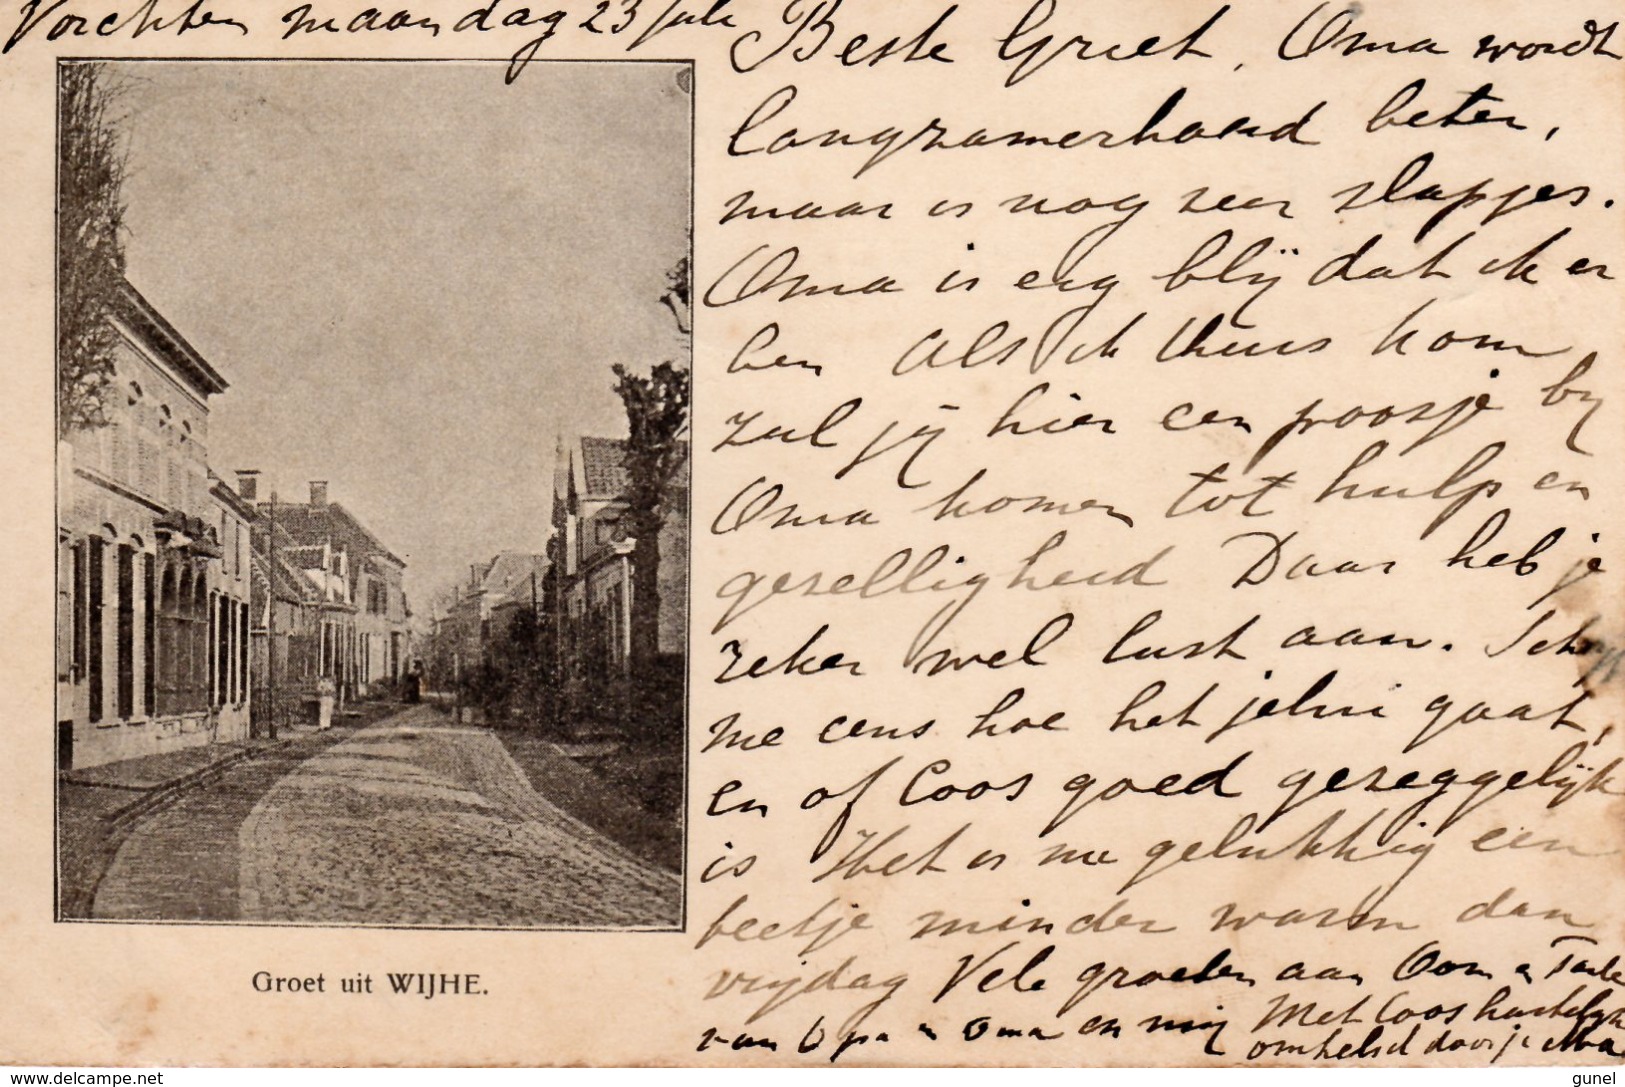 Vorchten maandag 23 Juli
Beste Griet, Oma wordt
langzamerhand beter,
maar is nog zeer slapjes.
Oma is erg blij dat ik er
ben Als ik thuis kom
zul jij hier een poosje bij
Oma komen tot hulp en
gezelligheid Daar heb je
zeker wel lust aan. Schrijf
me eens hoe het jelui gaat,
en of Coos goed gezeggelijk
is Het is nu gelukkig een
beetje minder warm dan
vrijdag Vele groeten aan Oom en Tante
van Opa en Oma en mij Met Coos hartelijk
omhelsd door je Ma
Groet uit WIJHE.
www.delcampe.net
gunel